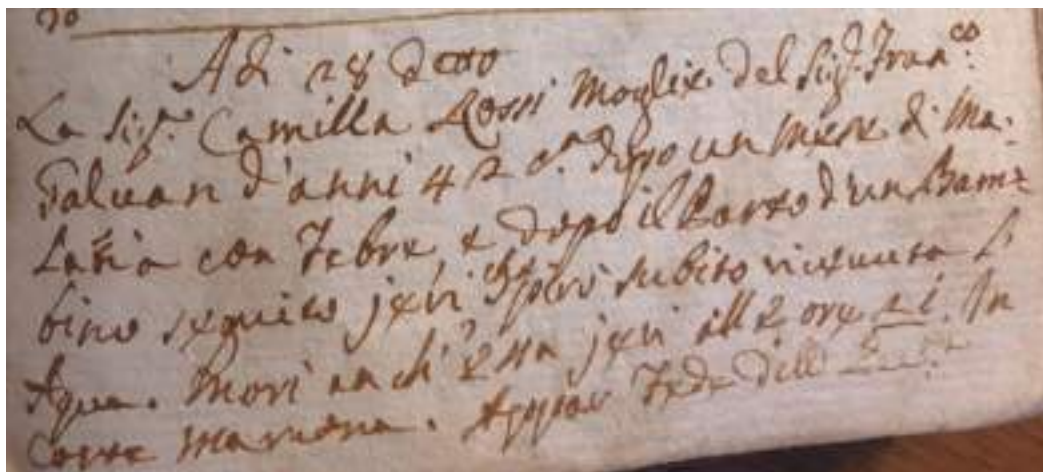 Adi 28 detto
La Sig.ra Camilla Rossi Moglie del Sig.r Fran.co
Galuan d'anni 42 c.a dopo un Mese di Ma-
Lattia con Febre, e dopo il Parto d'un Bam=
bino seguito jeri che spirò subito riceuuta l'
Aqua. Morì anch'essa jeri all'ore 21. In
Corte . Appar Fede dell